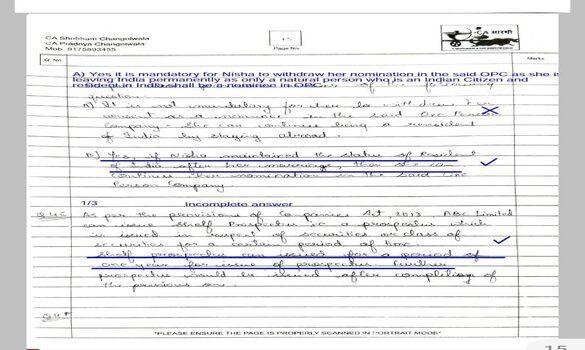 CA Shubham Changolwala
CA Pradnya Changolwala
Mob. 9175893455
15
Page No.
CA
Q. No.
Marks
A) Yes it is mandatory for Nisha to withdraw her nomination in the said OPC as she is
leaving India permanently as only a natural person who is an Indian Citizen and
resident in India shall be a nominee in OPC
of the following
question
A) It is not mandatory for her to withdraw her
consent as a nominee in the said One Person
Company. She can continue being a resident
of India by staying abroad.
B) Yes, if Nisha maintained the status of Resident
of India after her marriage, then she can
continue her nomination in the said One
Person Company.
1/3 Incomplete answer
Q 4 C As per the provisions of Companies Act, 2013, ABC Limited
can issue Shelf Prospectus is a prospectus which
is issued in respect of securities or class of
securities for a certain period of time.
Shelf prospectus can issued for a period of
one year for issue of prospectus. Further
prospectus should be issued after completion of
the previous one.
"PLEASE ENSURE THE PAGE IS PROPERLY SCANNED IN PORTRAIT MODE"
15